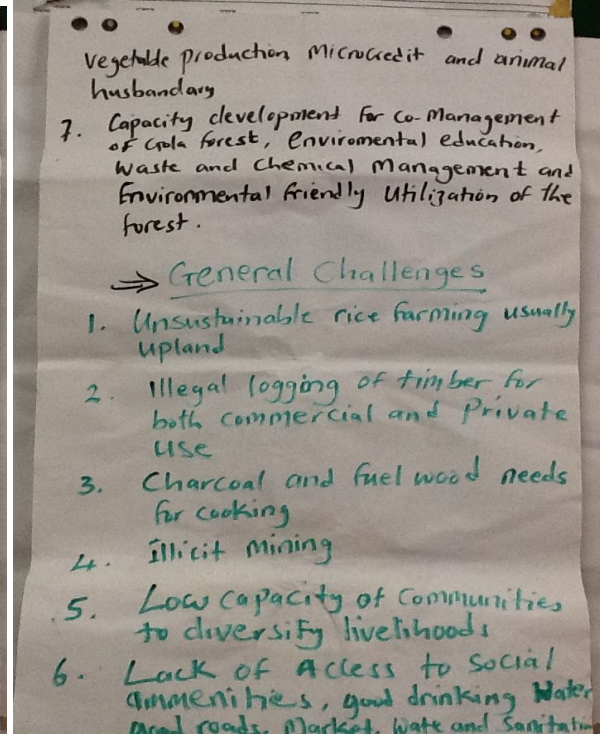 vegetable production microcredit and animal
husbandary
7. Capacity development for co-management
of Gola forest, enviromental education,
waste and chemical management and
Environmental friendly utilization of the
forest.
⇒ General Challenges
1. Unsustainable rice farming usually
upland
2. Illegal logging of timber for
both commercial and Private
use
3. Charcoal and fuel wood needs
for cooking
4. Illicit mining
5. Low capacity of communities
to diversify livelihoods
6. Lack of Access to social
ammenities, good drinking Water
good roads, Market, Wate and Sanitation